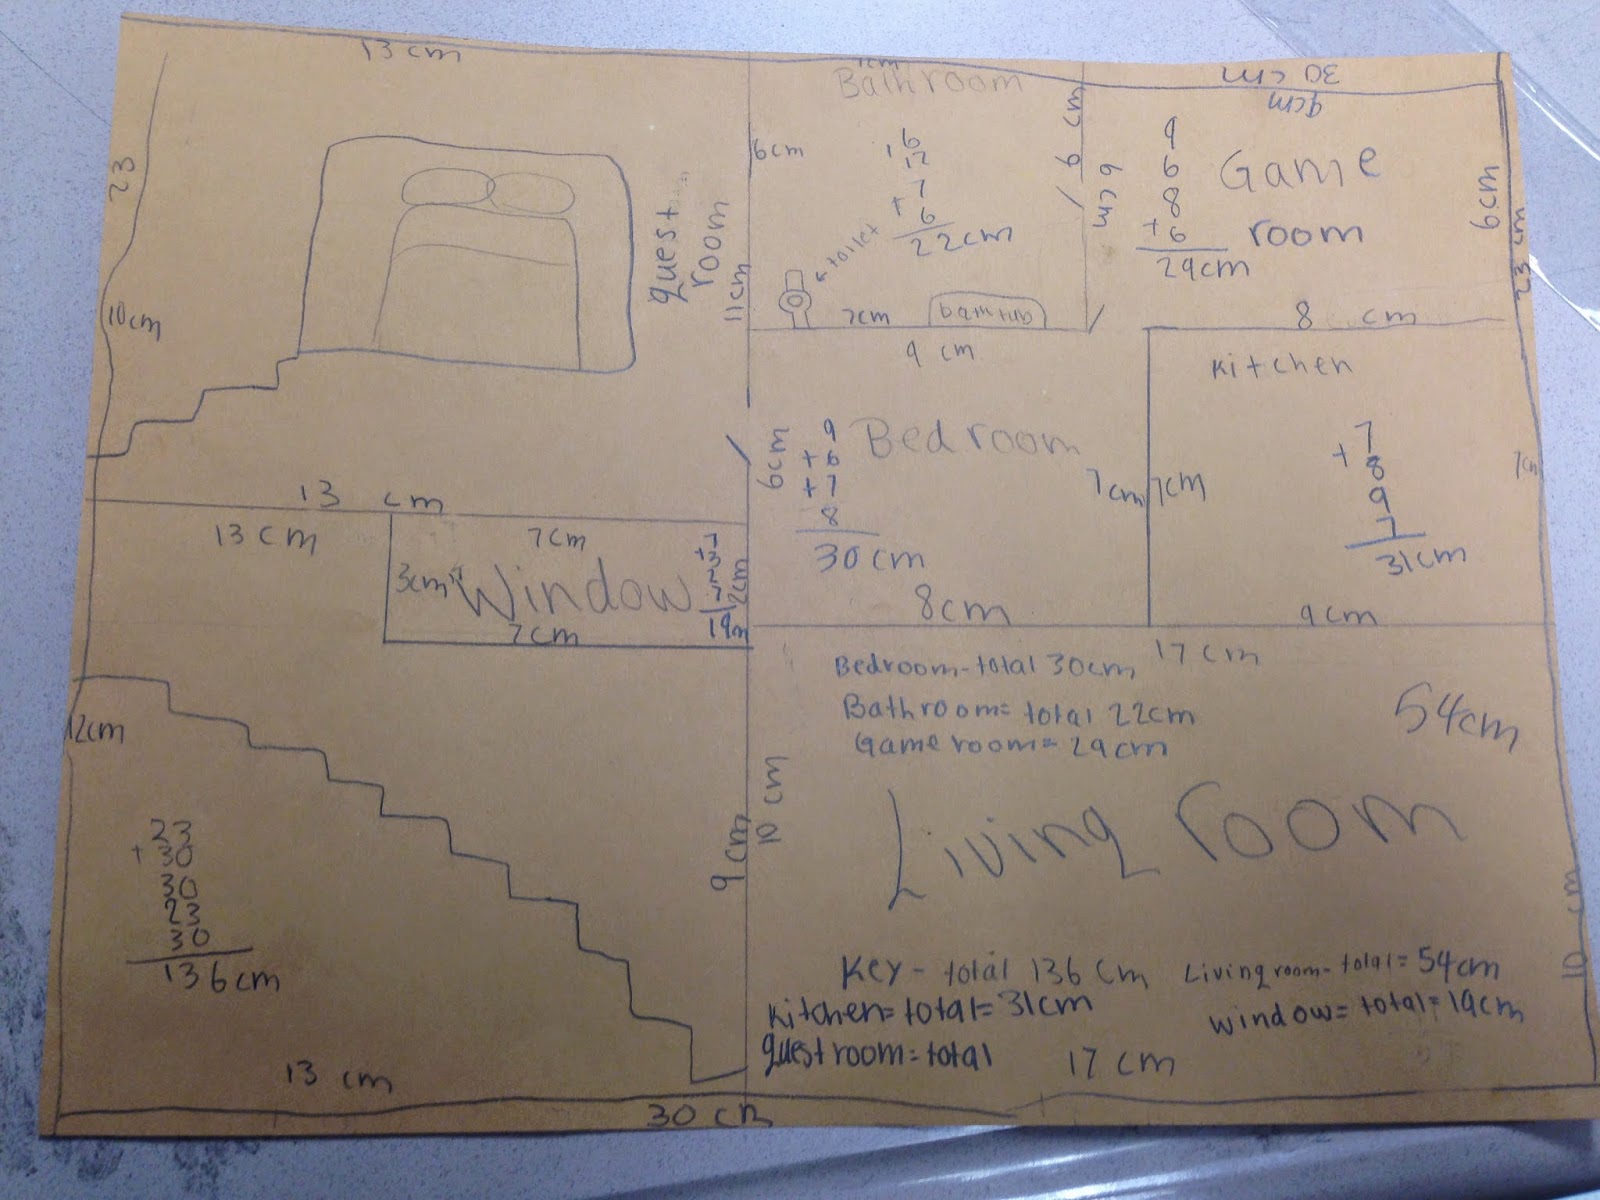 13 cm
23
10cm
guest
room
11cm
13 cm
13 cm
7cm
3cm
Window
2cm
7cm
19m
12cm
23
+30
30
23
30
136cm
13 cm
30 cm
9 cm
Bathroom
6cm
6 cm
toilet
7cm
bathtub
22cm
30 cm
9cm
6 cm
9
6
8
+6
29cm
Game
room
6cm
23 cm
8 cm
9 cm
Bedroom
6cm
9
+6
+7
8
30cm
7cm
8cm
Kitchen
7cm
7
+8
9
7
31cm
7cm
9cm
17 cm
Bedroom-total 30cm
Bathroom= total 22cm
Game room= 29cm
54cm
10 cm
Living room
10 cm
Key - total 136 cm
Living room- total= 54cm
Kitchen= total= 31cm
window= total= 19cm
guest room= total
17 cm